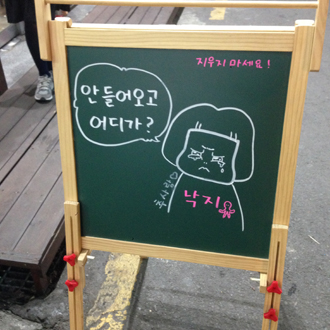 지우지 마세요!
안들어오고
어디가?
낙지